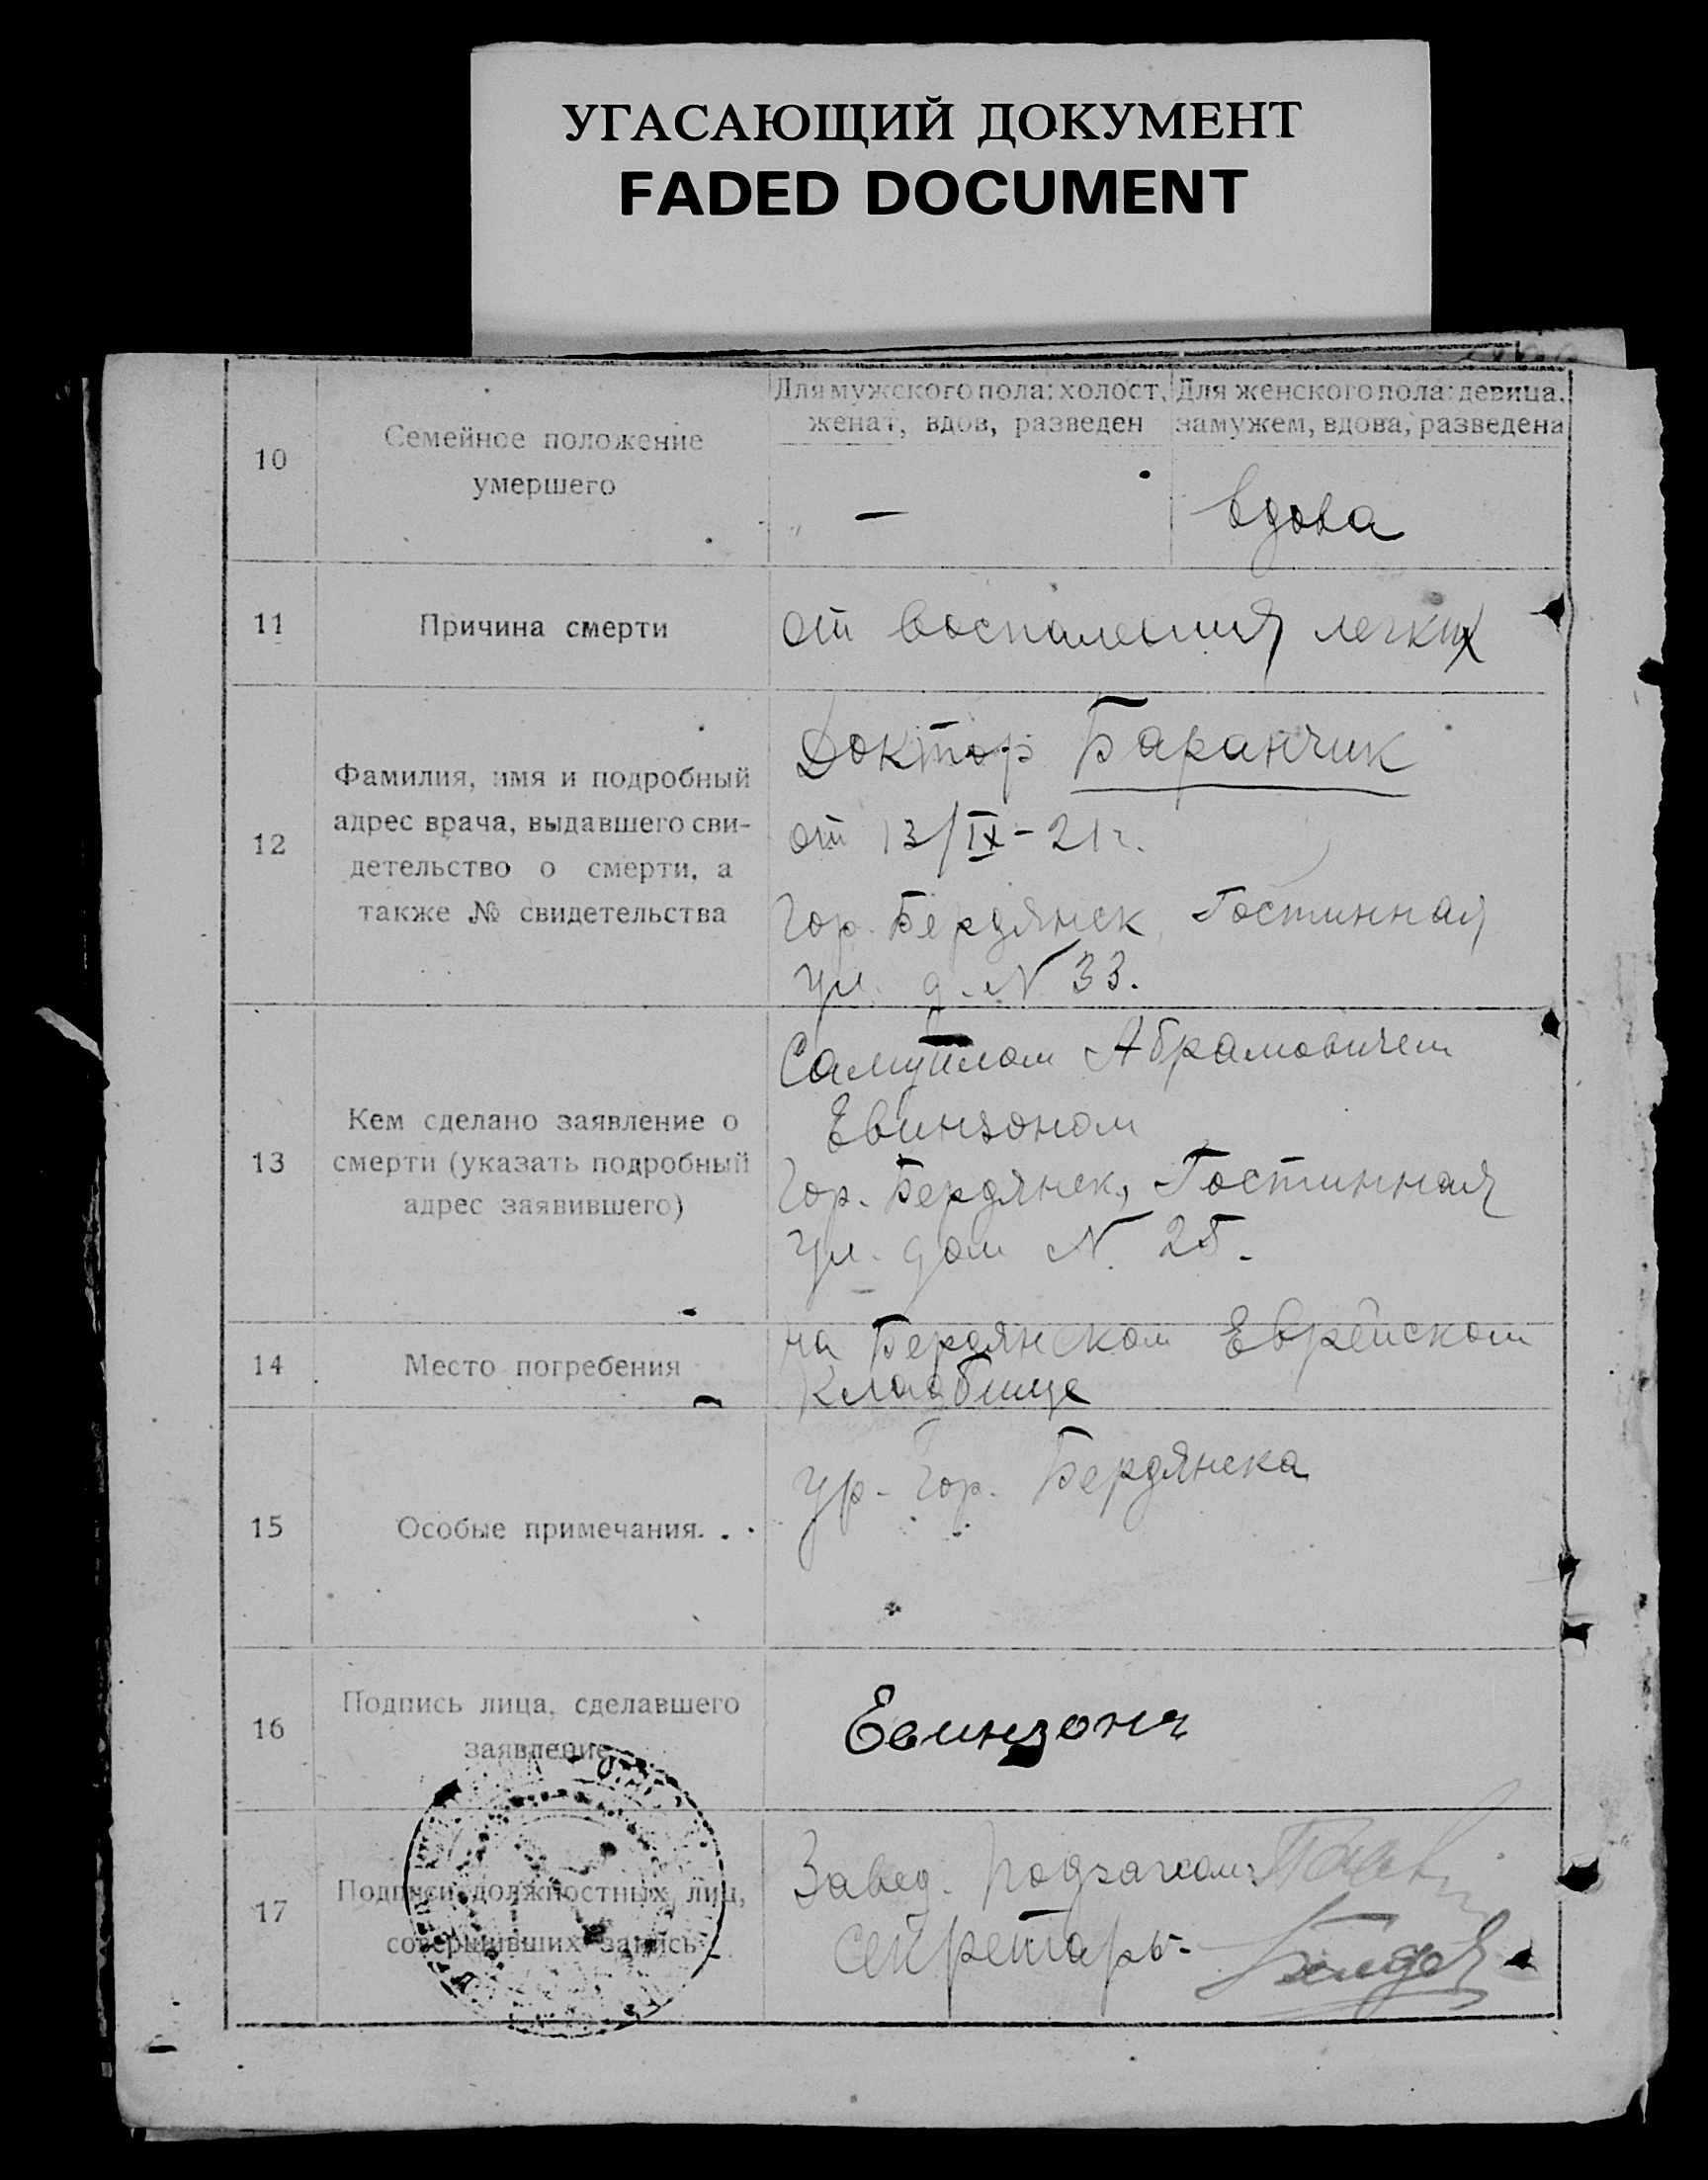 УГАСАЮЩИЙ ДОКУМЕНТ
FADED DOCUMENT
10
Семейное положение
умершего
Для мужского пола: холост,
женат, вдов, разведен
—
Для женского пола: девица,
замужем, вдова, разведена
вдова
11
Причина смерти
от воспаления легких
12
Фамилия, имя и подробный
адрес врача, выдавшего сви-
детельство о смерти, а
также № свидетельства
Доктор Баранчик
от 13/IX – 21 г.
Гор. Бердянск, Гостинная
ул. д. N 33.
13
Кем сделано заявление о
смерти (указать подробный
адрес заявившего)
Самуилом Абрамовичем
Евинзоном
Гор. Бердянск, Гостинная
ул. дом N. 25.
14
Место погребения
на Бердянском Еврейском
кладбище
15
Особые примечания. . .
ур. гор. Бердянска
16
Подпись лица, сделавшего
заявление
Евинзонъ
17
Подписи должностных лиц,
совершивших запись
Завед. Подзагсом
Секретарь